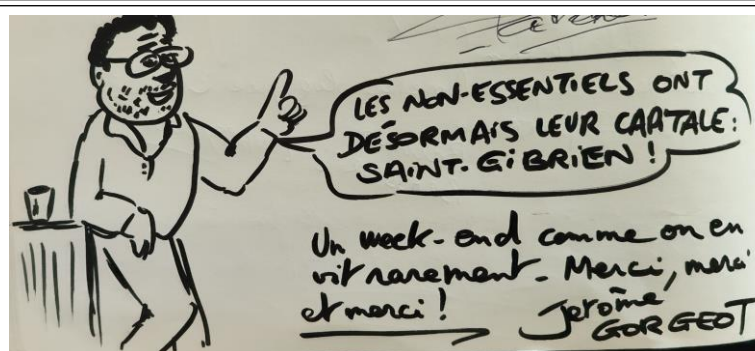 LES NON-ESSENTIELS ONT
DÉSORMAIS LEUR CAPTALE :
SAINT-GIBRIEN !
Un week-end comme on en
vit rarement. Merci, merci
et merci !
Jerôme
GORGEOT